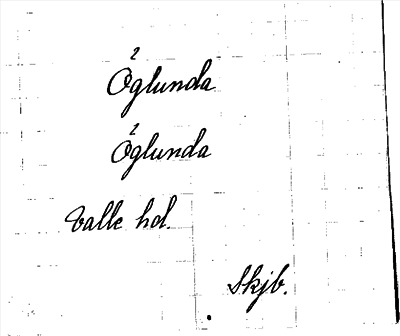 2
Öglunda
2
Öglunda
Valle hd.
Skjb.